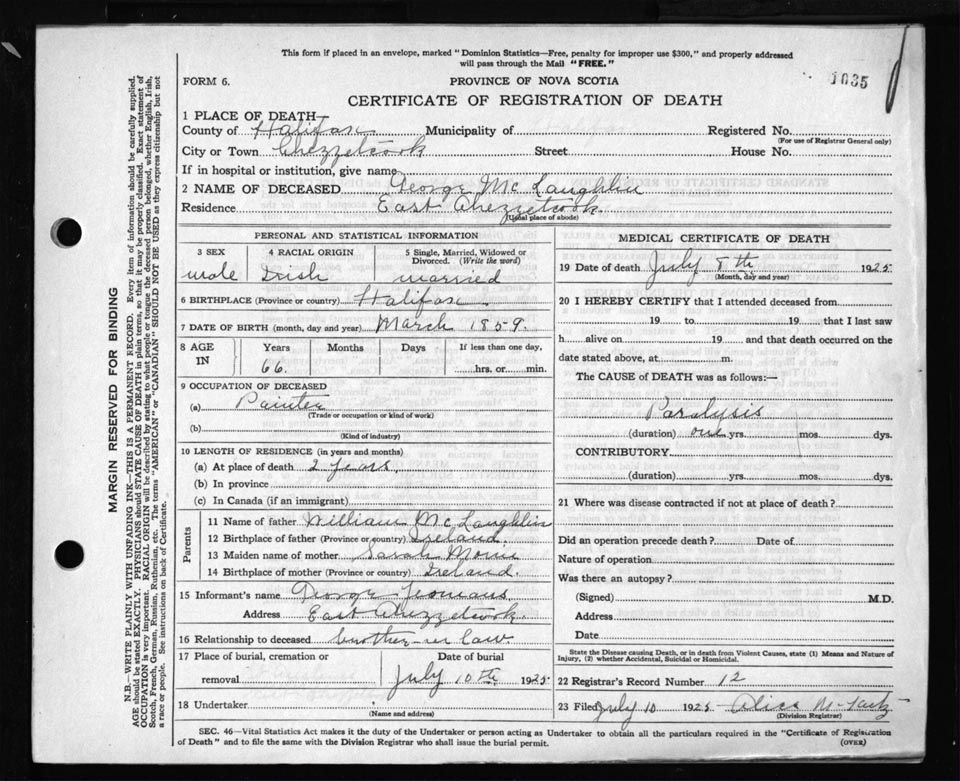 This form if placed in an envelope, marked "Dominion Statistics—Free, penalty for improper use $300," and properly addressed
will pass through the Mail "FREE."
FORM 6.
PROVINCE OF NOVA SCOTIA
1035
CERTIFICATE OF REGISTRATION OF DEATH
1 PLACE OF DEATH—
County of Halifax Municipality of Registered No.
(For use of Registrar General only)
City or Town Chezzetcook Street House No.
If in hospital or institution, give name
2 NAME OF DECEASED George Mc Laughlin
Residence East Chezzetcook.
(Usual place of abode)
PERSONAL AND STATISTICAL INFORMATION
3 SEX 4 RACIAL ORIGIN 5 Single, Married, Widowed or
Divorced. (Write the word)
male Irish married
6 BIRTHPLACE (Province or country) Halifax
7 DATE OF BIRTH (month, day and year) March 1859.
8 AGE IN Years Months Days If less than one day,
66. hrs. or min.
9 OCCUPATION OF DECEASED
(a) Painter
(Trade or occupation or kind of work)
(b)
(Kind of industry)
10 LENGTH OF RESIDENCE (in years and months)
(a) At place of death 2 years.
(b) In province
(c) In Canada (if an immigrant)
Parents
11 Name of father William Mc Laughlin
12 Birthplace of father (Province or country) Ireland.
13 Maiden name of mother Sarah
14 Birthplace of mother (Province or country) Ireland.
15 Informant's name George
Address East Chezzetcook.
16 Relationship to deceased brother in law
17 Place of burial, cremation or Date of burial
removal July 10th 1925
18 Undertaker
(Name and address)
MEDICAL CERTIFICATE OF DEATH
19 Date of death July 8th 1925
(Month, day and year)
20 I HEREBY CERTIFY that I attended deceased from
19 to 19 that I last saw
h alive on 19 and that death occurred on the
date stated above, at m.
The CAUSE of DEATH was as follows:—
Paralysis
(duration) one yrs. mos. dys.
CONTRIBUTORY
(duration) yrs. mos. dys.
21 Where was disease contracted if not at place of death?
Did an operation precede death? Date of
Nature of operation
Was there an autopsy?
(Signed) M.D.
Address
Date
State the Disease causing Death, or in death from Violent Causes, state (1) Means and Nature of
Injury, (2) whether Accidental, Suicidal or Homicidal.
22 Registrar's Record Number 12
23 Filed July 10 1925 Alice
(Division Registrar)
SEC. 46—Vital Statistics Act makes it the duty of the Undertaker or person acting as Undertaker to obtain all the particulars required in the "Certificate of Registration
of Death" and to file the same with the Division Registrar who shall issue the burial permit.
(OVER)
MARGIN RESERVED FOR BINDING
N.B.—WRITE PLAINLY WITH UNFADING INK—THIS IS A PERMANENT RECORD. Every item of information should be carefully supplied.
AGE should be stated EXACTLY. PHYSICIANS should STATE CAUSE OF DEATH in plain terms, so that it may be properly classified. Exact statement of
OCCUPATION is very important. RACIAL ORIGIN will be described by stating to what people or tongue the deceased person belonged, whether English, Irish,
Scotch, French, German, Russian, Ruthenian, etc. The terms "AMERICAN" or "CANADIAN" SHOULD NOT BE USED as they express citizenship but not
a race or people. See instructions on back of Certificate.